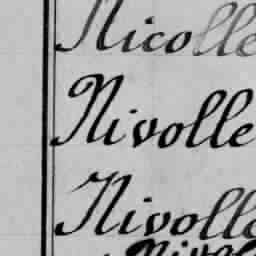 Nicolle
Nivolle
Nivolle
Nivol